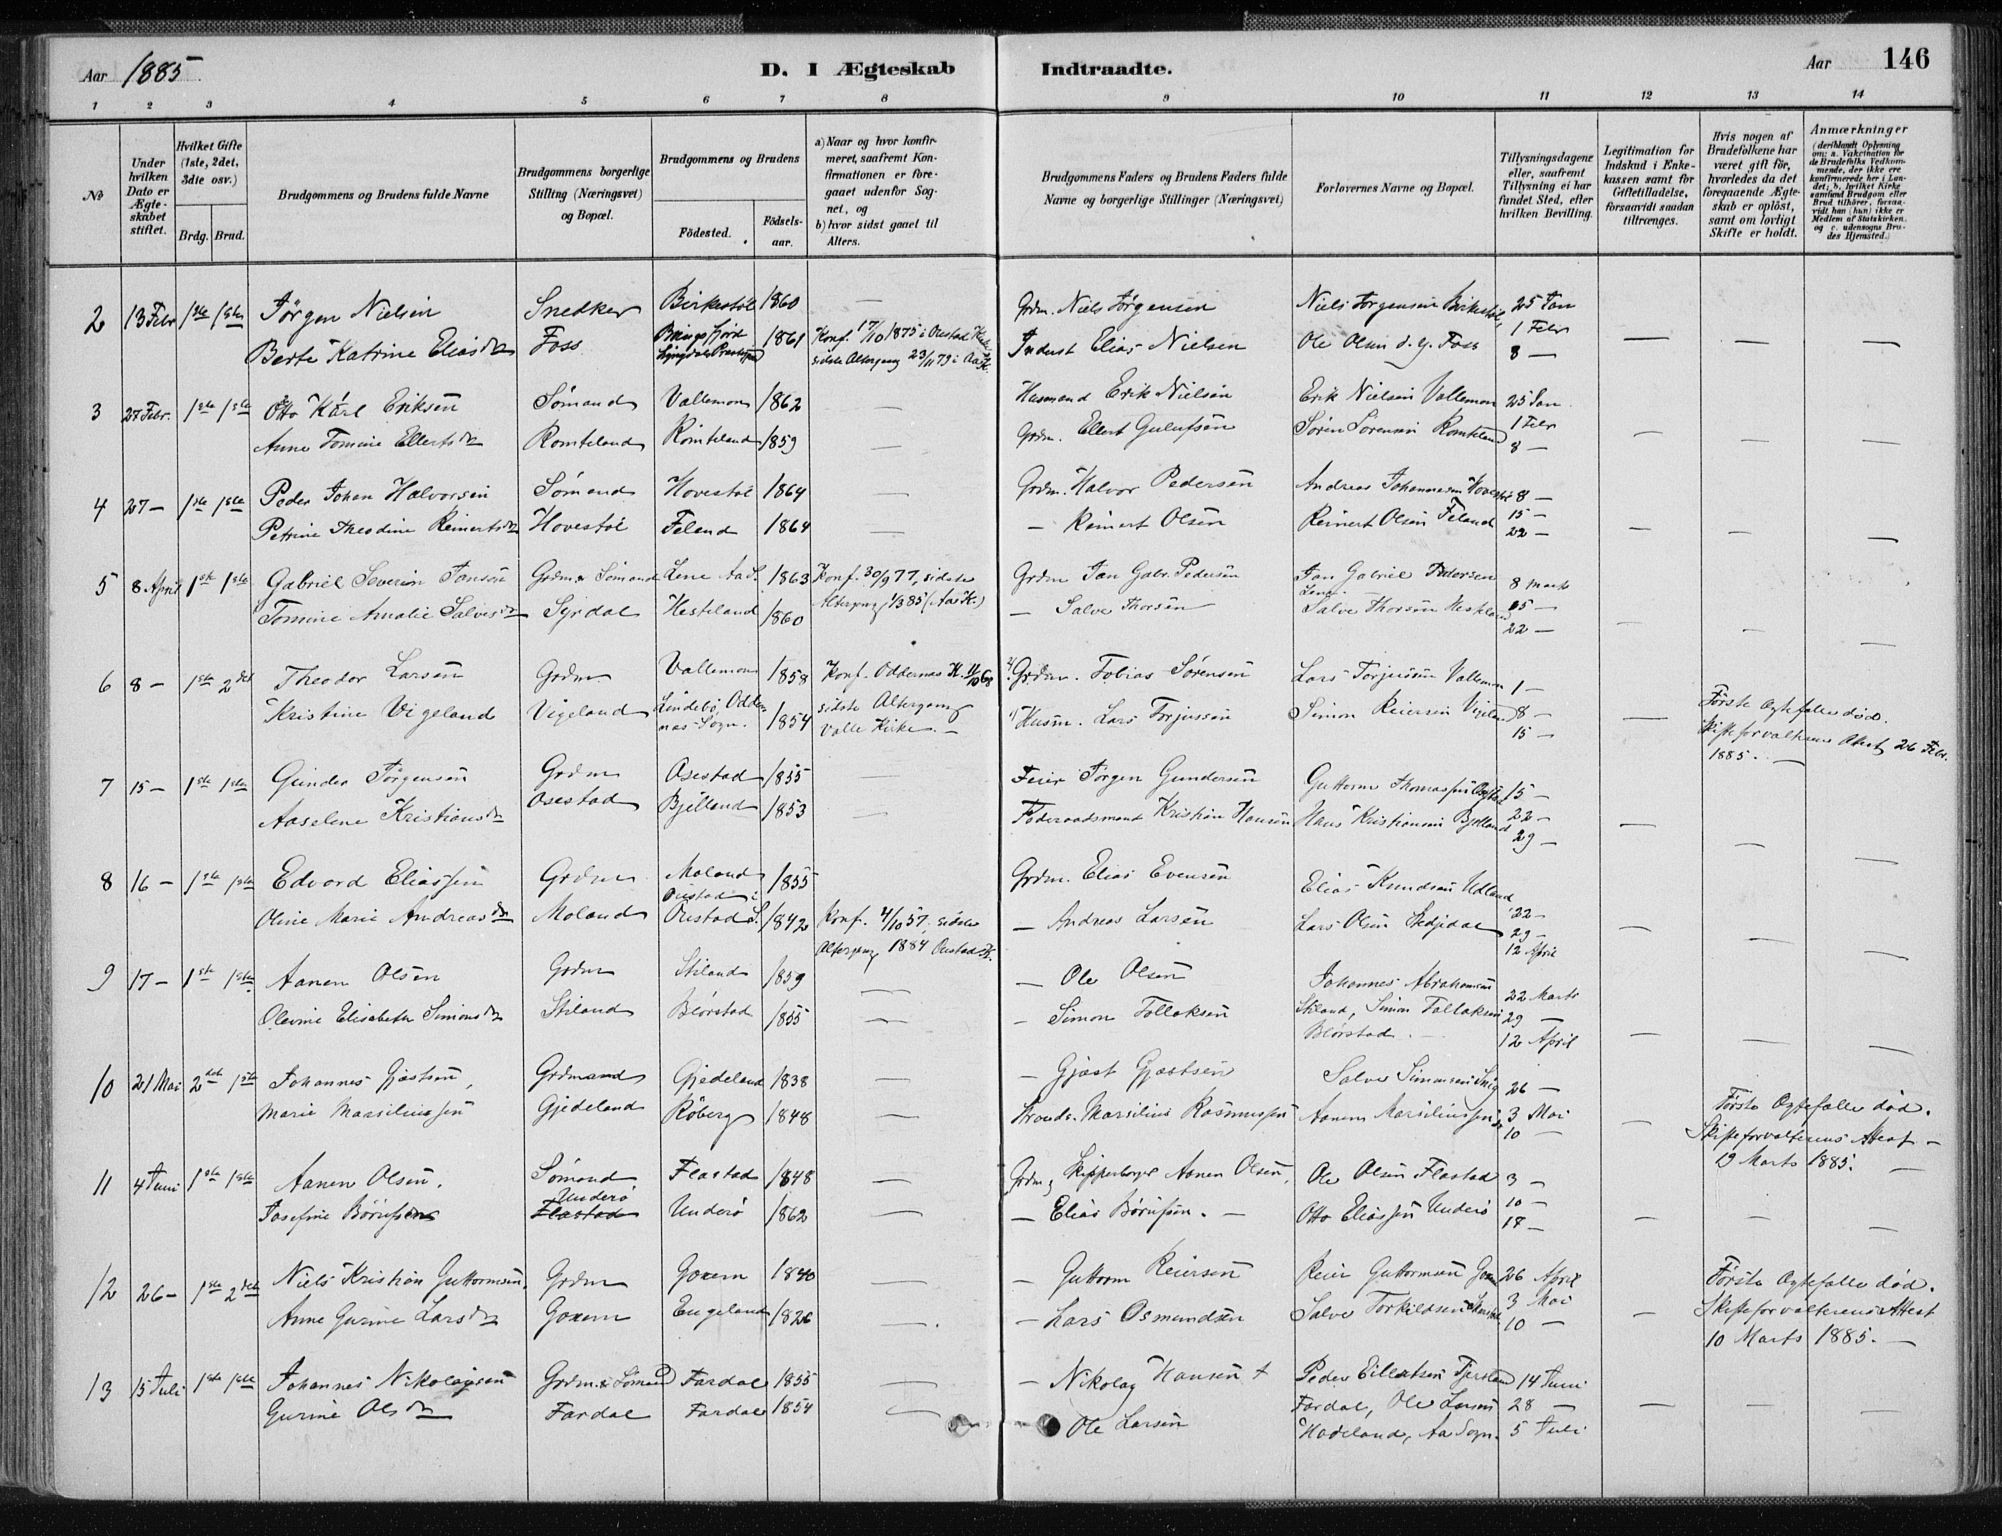 Aar 1885.
D. I Ægteskab Indtraadte.
Aar 146
1 2 3 4 5 6 7 8 9 10 11 12 13 14
No
Under hvilken Dato er Ægteskabet stiftet.
Hvilket Gifte (1ste, 2det, 3die osv.)
Brdg. Brud.
Brudgommens og Brudens fulde Navne
Brudgommens borgerlige Stilling (Næringsvei) og Bopæl.
Brudgommens og Brudens
Födested. Födselsaar.
a) Naar og hvor konfirmeret, saafremt Konfirmationen er foregaaet udenfor Sognet, og
b) hvor sidst gaaet til Alters.
Brudgommens Faders og Brudens Faders fulde Navne og borgerlige Stillinger (Næringsvei)
Forlovernes Navne og Bopæl.
Tillysningsdagene eller, saafremt Tillysning ei har fundet Sted, efter hvilken Bevilling.
Legitimation for Indskud i Enkekassen samt for Giftetilladelse, forsaavidt saadan tiltrænges.
Hvis nogen af Brudefolkene har været gift för, hvorledes da det foregaaende Ægteskab er oplöst, samt om lovligt Skifte er holdt.
Anmærkninger (deriblandt Oplysning om: a. Vakcination for de Brudefolks Vedkommende, der ikke ere konfirmerede her i Landet; b. hvilket Kirkesamfund Brudgom eller Brud tilhörer, forsaavidt han (hun) ikke er Medlem af Statskirken, og c. udensogns Brudes Hjemsted.)
2 13 Febr 1ste 1ste Jörgen Nielsen Snedker Birkestöl 1860 — Grdm. Niels Jörgensen Niels Jörgensen Birkestöl 25 Jan
Berte Katrine Eliasdr Foss 1861 Konf. 17/10 1875 i Oustad Kirke Inderst Elias Nielsen Ole Olsen d. y. Foss 1 Febr
sidste Altergang 23/11 79 i Aa K. 8 —
3 27 Febr. 1ste 1ste Otto Karl Eriksen Sömand Vallemon 1862 — Husmand Erik Nielsen Erik Nielsen Vallemon 25 Jan
Anne Tomine Ellertsdr Romteland Romteland 1859 — Grdm. Ellert Gulufsen Sören Sörensen Romteland 1 Febr
8 —
4 27 — 1ste 1ste Peder Johan Halvorsen Sömand Hovestöl 1864 — Grdm. Halvor Pedersen Andreas Johannesen Hovestöl 8 —
Petrine Theodine Reinertsdr Hovestöl Feland 1864 — Reinert Olsen Reinert Olsen Feland 15 —
22 —
5 8 April 1ste 1ste Gabriel Severin Jansen Grdm & Sömand Lene Aa S. 1863 Konf. 30/9 77, sidste Grdm Jan Gabr. Pedersen Jan Gabriel Pedersen Lene. 8 Marts
Tomine Amalie Salvesdr Syrdal Hesteland 1860 Altergang 1/3 85 (Aa K.) — Salve Thorsen Salve Thorsen Hesteland 15 —
22 —
6 8 — 1ste 2det Theodor Larsen Grdm. Vallemon 1858 Konf. Oddernes K. 11/10 68 2/ Grdm. Tobias Sörensen Lars Torjussen Vallemon 1 —
Kristine Vigeland Vigeland Lindebö, Oddernæs Sogn. 1854 sidste Altergang Valle Kirke. — 1/ Husm. Lars Torjussen Simon Reiersen Vigeland 8 —
15 —
Förste Ægtefælle död. Skifteforvalterens Attest 26 Febr. 1885. —
7 15 — 1ste 1ste Gunder Jörgensen Grdm Osestad 1855 — Feier Jörgen Gundersen Guttorm Thomassen Osestad 15 —
Aaselene Kristiansdr Osestad Bjelland 1853 — Föderaadsmand Kristian Hansen Hans Kristiansen Bjelland 22 —
29 —
8 16 — 1ste 1ste Edvard Eliassen Grdm Moland 1855 Grdm. Elias Evensen Elias Knudsen Udland
Oline Marie Andreasdr Moland Oustad i Oustad S. 1842 Konf. 4/10 57, sidste — Andreas Larsen Lars Olsen 22 —
Altergang 1884 Oustad K. 29 —
12 April
9 17 — 1ste 1ste Aanen Olsen Grdm Stiland 1859 — — Ole Olsen Johannes Abrahamsen 22 Marts
Olevine Elisabeth Simonsdr Stiland Blörstad 1855 — — Simon Tollaksen Stiland, Simon Tollaksen 29 —
Blörstad. 12 April
10 21 Mai 2det 1ste Johannes Gjöstsen, Grdmand Gjedeland 1838 — — Gjöst Gjöstsen Salve Simonsen 26 —
Marie Marsiliussen Gjedeland Röberg 1848 — Marsilius Rasmussen Aanen Marsiliussen 3 Mai
10 —
Förste Ægtefælle död. Skifteforvalterens Attest — 19 Marts 1885. —
11 4 Juni 1ste 1ste Aanen Olsen. Sömand Flastad 1848 — Grdm & Skipperborger Aanen Olsen, Ole Olsen Flastad 3 —
Josefine Börufsen Underö Flastad Underö 1862 — — Elias Börufsen. — Otto Eliassen Underö 10 —
17 —
12 26 — 1ste 2det Niels Kristian Guttormsen Grdm Goxem 1840 — — Guttorm Reiersen Reier Guttormsen Goxem 26 April
Anne Gurine Larsdr Goxem Engeland 1826 — — Lars Osmundsen Salve Torkildsen 3 Mai
10 —
Förste Ægtefælle död. Skifteforvalterens Attest 10 Marts 1885. —
13 15 Juli 1ste 1ste Johannes Nikolaysen Grdm & Sömand Fardal 1855 — — Nikolay Hansen † Peder 14 Juni
Gurine Olsdr Fardal Fardal 1854 — Ole Larsen Fardal, Ole Larsen 28 —
Hadeland, Aa Sogn. 5 Juli